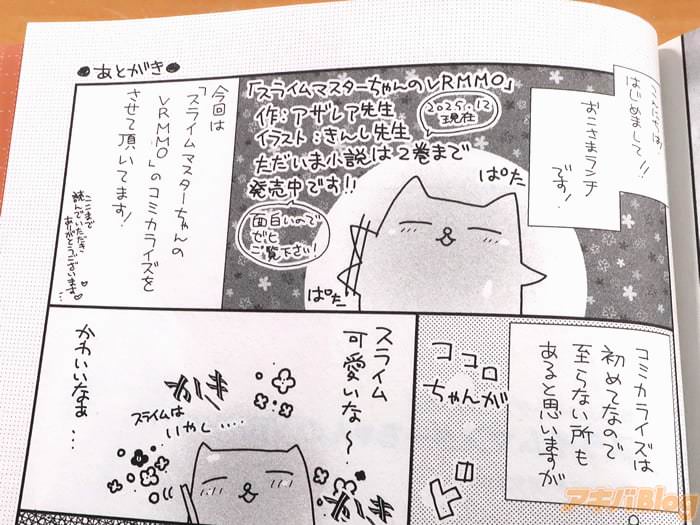 ●あとがき●
こんにちは、
はじめまして!!
おこさまランチ
です!
「スライムマスターちゃんのVRMMO」
作:アザレア先生
イラスト:きんし先生
2025.12
現在
ただいま小説は2巻まで
発売中です!!
面白いので
ぜひ
ご覧下さい!
ぱた
ぱた
今回は
「スライムマスターちゃんの
VRMMO」のコミカライズを
させて頂いてます!
ここまで
読んでいただき
ありがとうございます♡♡
コミカライズは
初めてなので
至らない所も
あると思いますが
ココロ
ちゃんが
ド
スライム
可愛いな〜
かきかき
スライムは
いやし....
かわいいなぁ...
アキバBlog